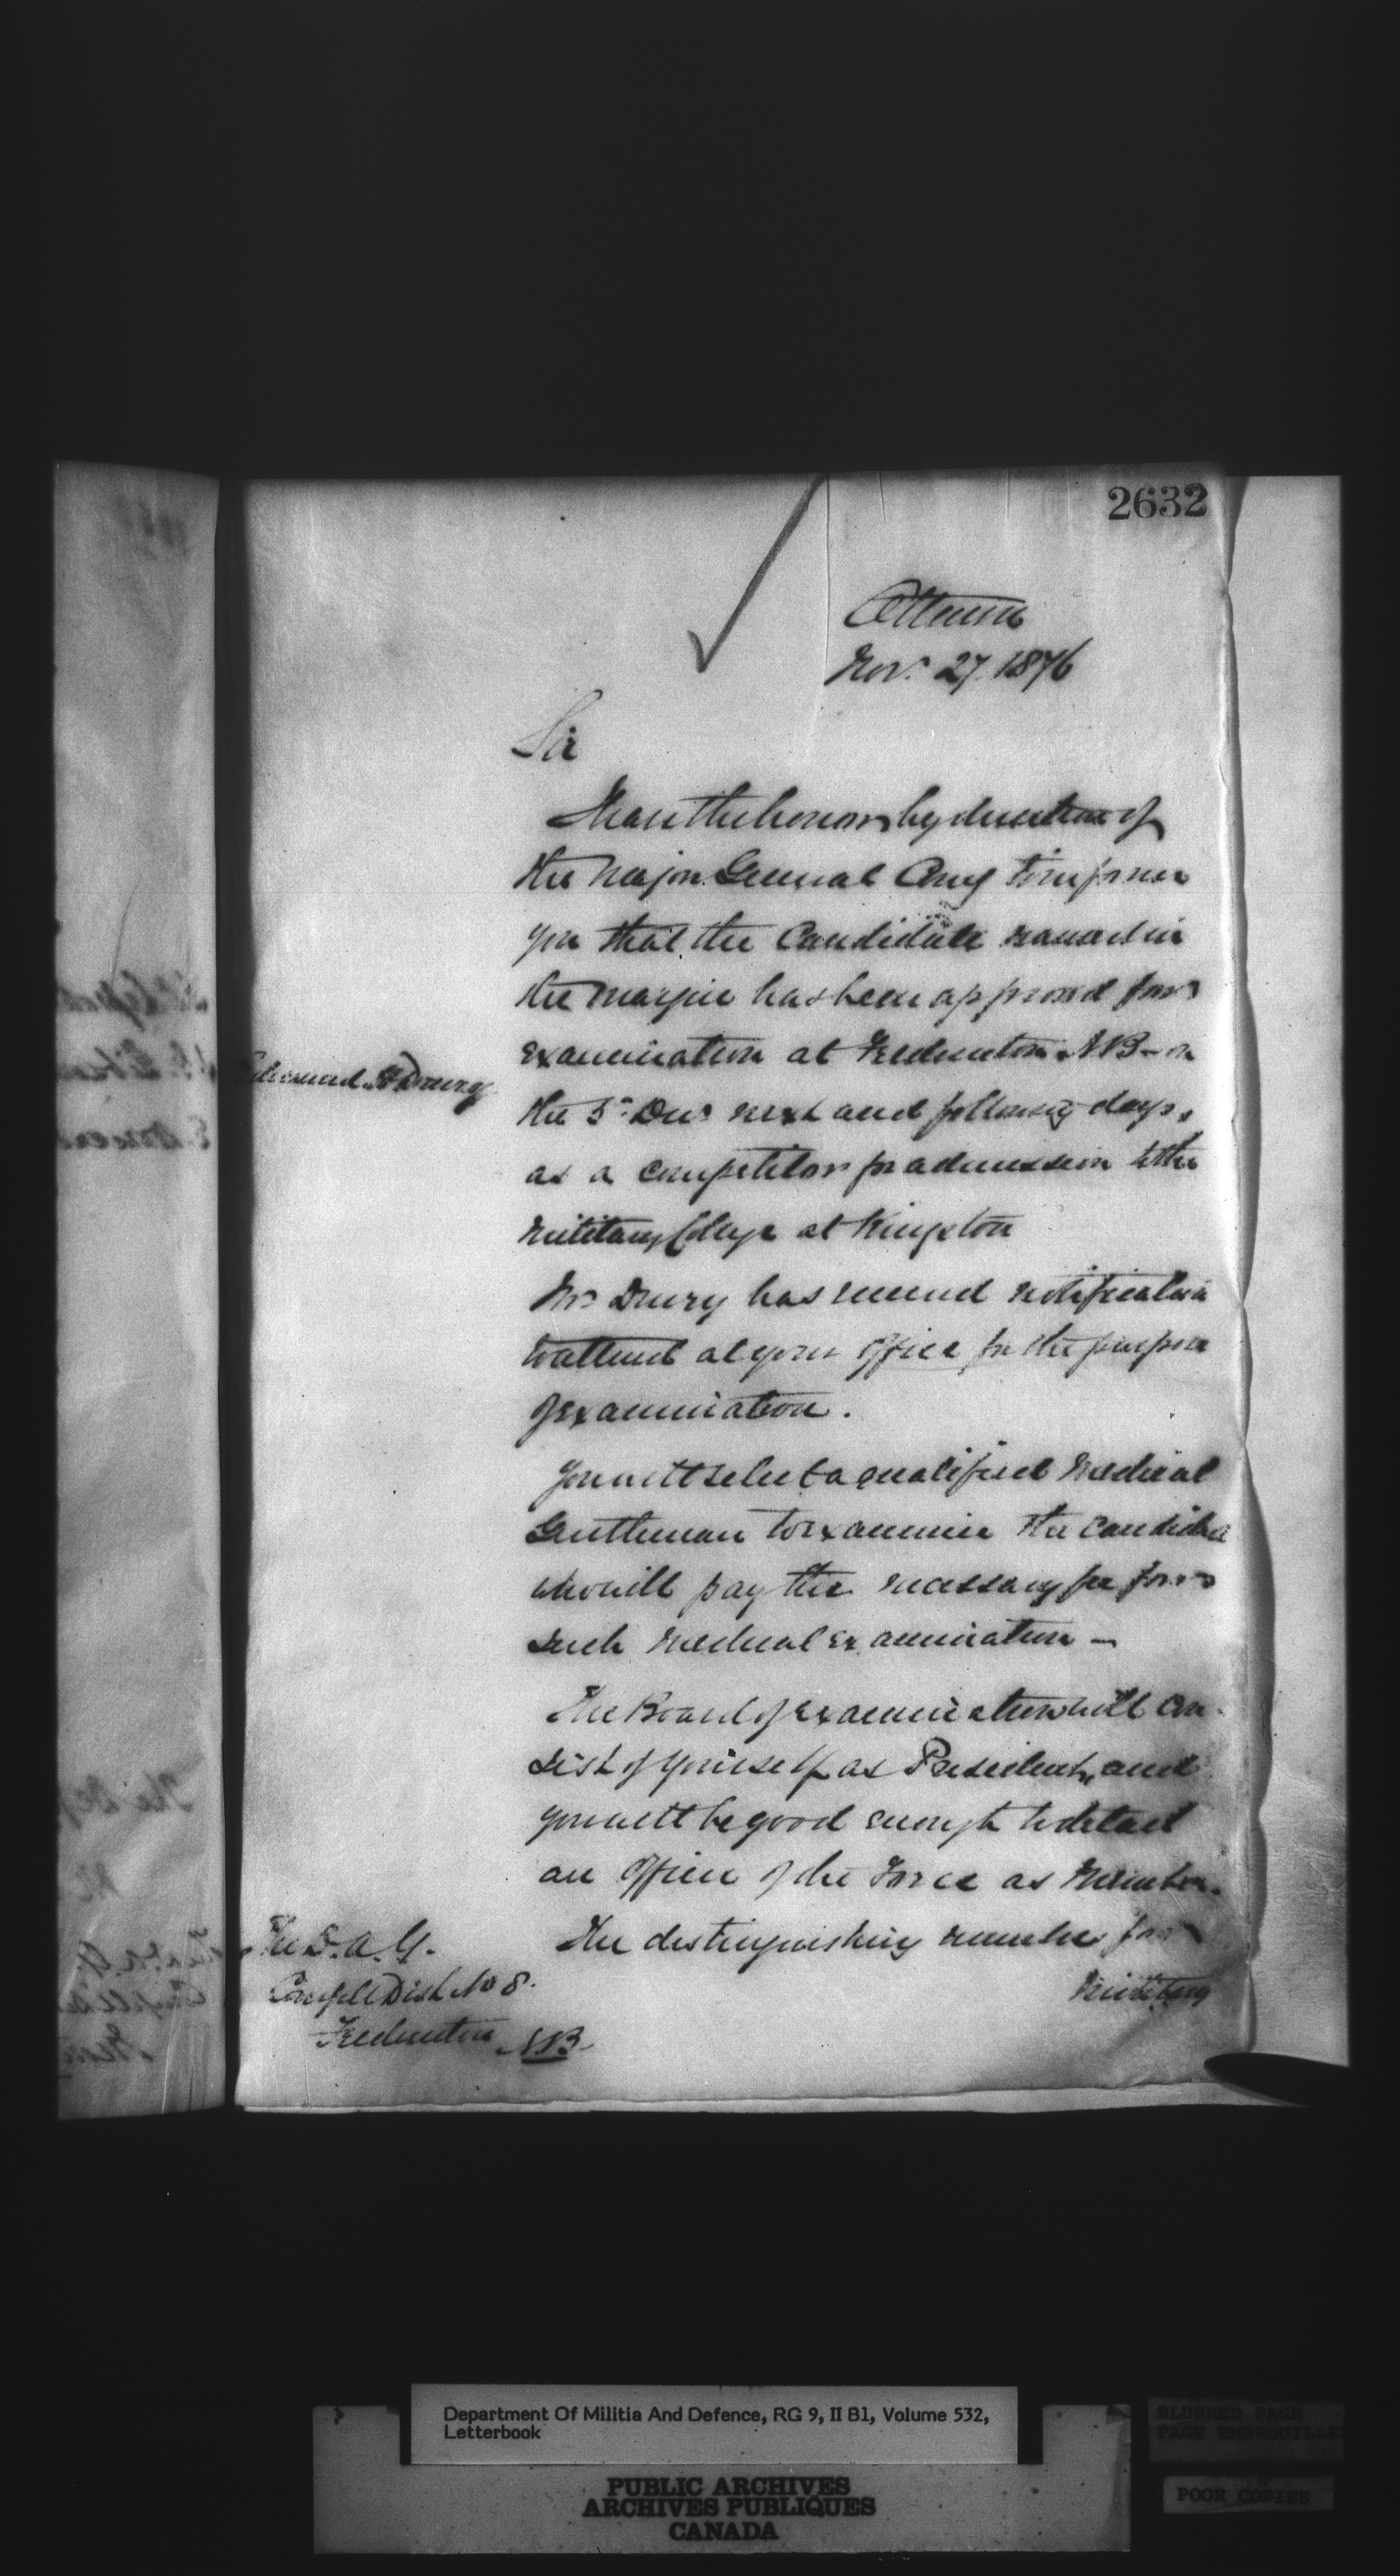 2632
Ottawa
Nov. 27. 1876
Sir
I have the honor by direction of
the Major General Comg to inform
you that the Candidate named in
the margin has been approved for
examination at Fredericton N.B. on
Edmund H Drury
the 5th Decr next and following days,
as a competitor for admission to the
Military College at Kingston
Mr Drury has received notification
to attend at your Office for the purpose
of examination.
You will select a qualified Medical
Gentleman to examine the candidate
who will pay the necessary fee for
such Medical examination —
The Board of Examination will con-
sist of yourself as President, and
you will be good enough to detail
an Officer of the Force as Member.
The distinguishing number for
Military
The D. A. G.
Dist No 8.
Fredericton N.B.
Department Of Militia And Defence, RG 9, II B1, Volume 532,
Letterbook
PUBLIC ARCHIVES
ARCHIVES PUBLIQUES
CANADA
BLURRED PAGE
PAGE EMBROUILLE
POOR COPIES